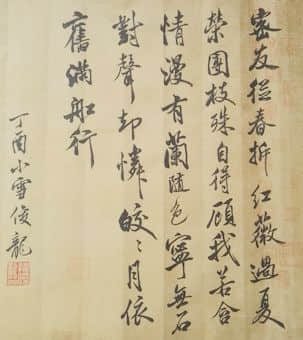 密友從春拆紅薇過夏
榮團枝殊自得顧我若含
情漫有蘭隨色寧無石
對聲却憐皎々月依
舊滿船行
丁酉小雪俊龍